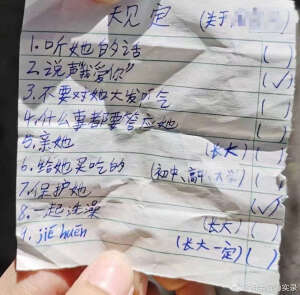 规定 (关于
1.听她的话 ( )
2.说声“我爱你” (✓)
3.不要对她大发脾气 ( )
4.什么事都要答应她 ( )
5.亲她 (长大) ( )
6.给她买吃的 (初中、高中、大学) ( )
7.保护她 (✓)
8.一起洗澡 (长大) ( )
9.jiē hūn (长大一定) ( )
实录